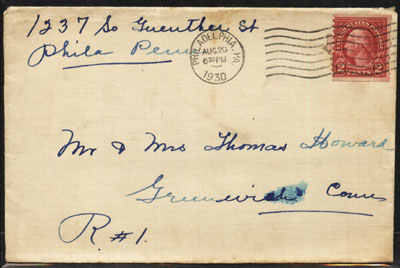 1237 So Guenther St
Phila Penn
PHILADELPHIA, PA
AUG 26
6 30 PM
1930
UNITED STATES POSTAGE
2 CENTS 2
Mr & Mrs Thomas Howard
Greenwich Conn
R #1.